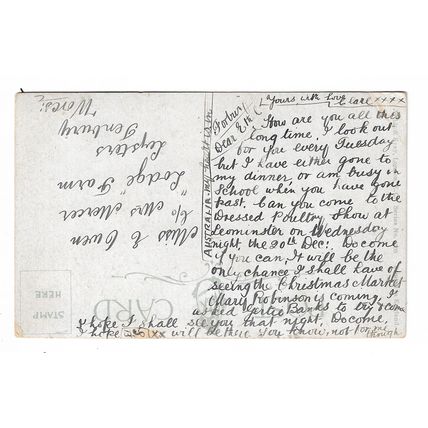 Yours with love Clare xxxx
Forbury
Dear Eth
How are you all this
long time. I look out
for you every Tuesday
but I have either gone to
my dinner or am busy in
School when you have gone
past. Can you come to the
Dressed Poultry Show at
Leominster on Wednesday
night the 20th Dec: Do come
if you can, it will be the
only chance I shall have of
seeing the Christmas Market
Mary Robinson is coming, I
asked Gertie Banks to try & come
I hope I shall see you that night. Do come.
I hope xx will be there you know, not for me
though
AUSTRALIA my heart is in
Miss E Owen
c/o Mrs Mercer
"Lodge" Farm
Leysters
Tenbury
Worcs:
CARD
STAMP
HERE